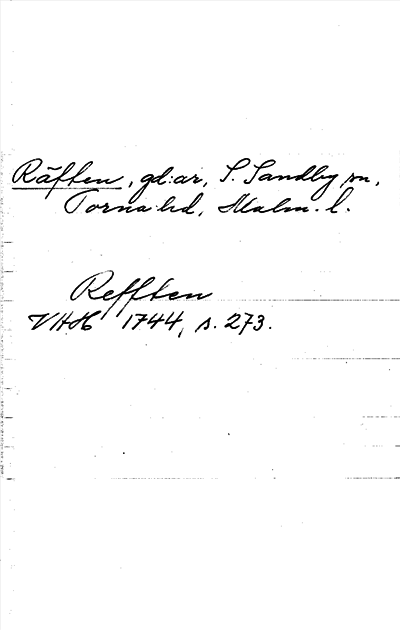 Räften, gd:ar, S. Sandby sn,
Torna hd, Malm. l.
Refften
VHH 1744, s. 273.